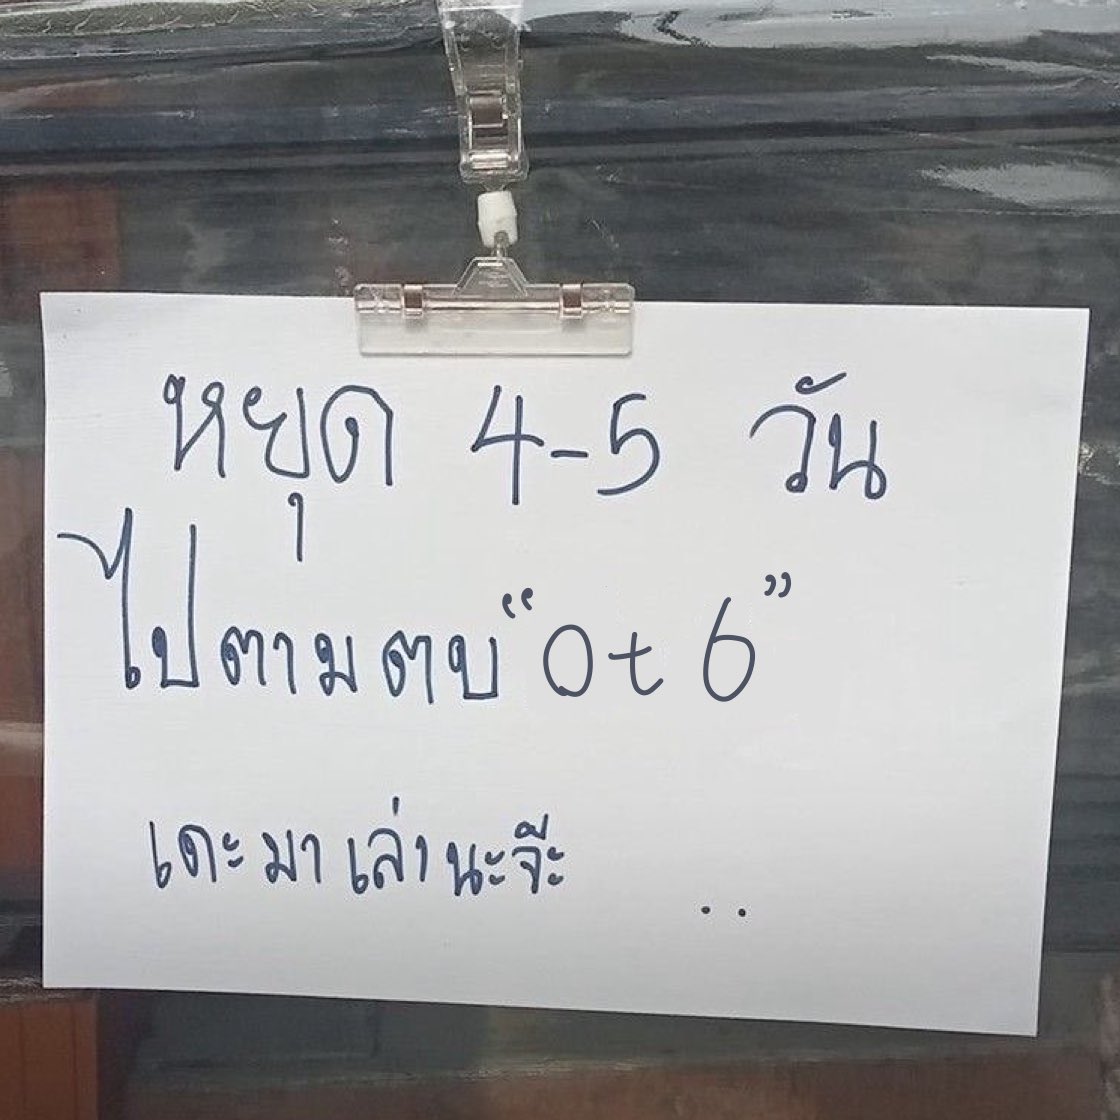 หยุด 4-5 วัน
ไปตามตบ "Ot 6"
เดะมาเล่านะจ๊ะ ..